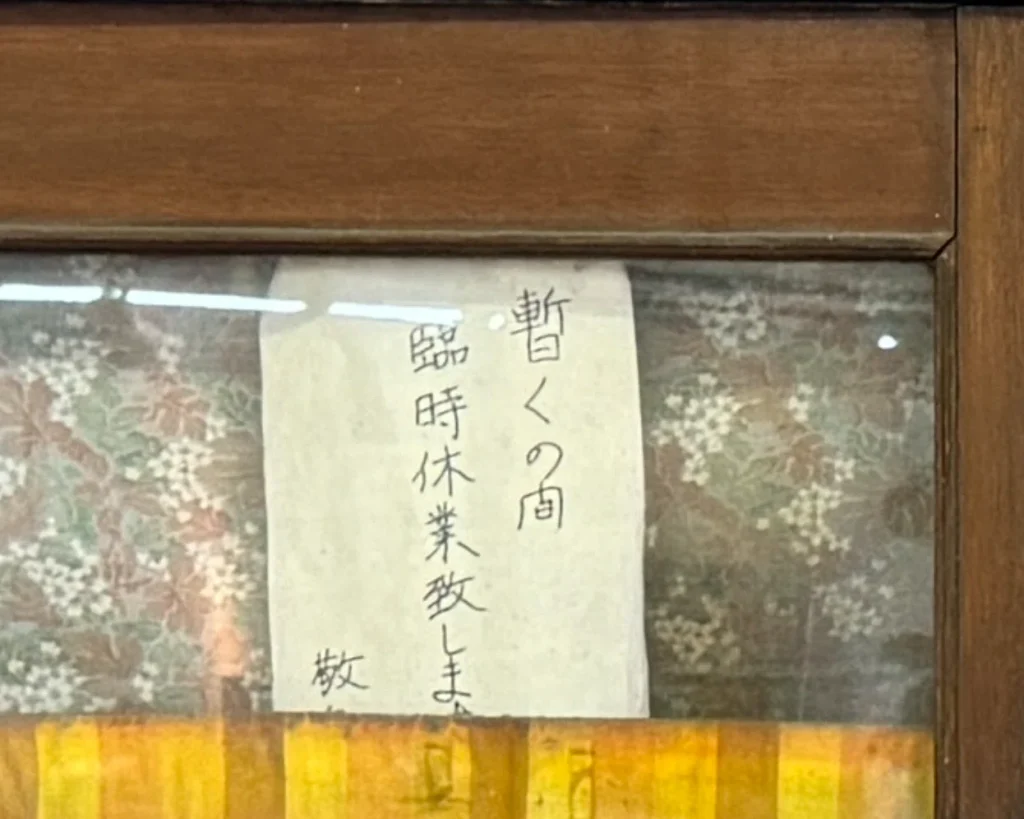 暫くの間
臨時休業致しま
敬